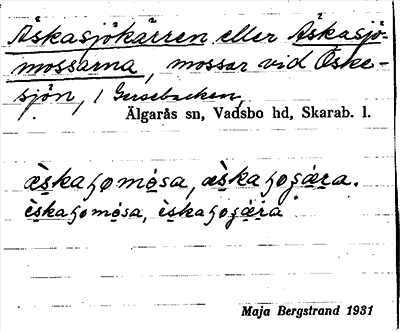 Äskasjökärren eller Äskasjö-
mossarna, mossar vid Öske-
sjön, / Gersebacken,
Älgarås sn, Vadsbo hd, Skarab. l.
æ̀skaɧomo̱sa, æ̀skaɧoʒæra.
ɛ̀skaɧomo̱sa, ɛ̀skaɧoʒɛ̀ra
Maja Bergstrand 1931